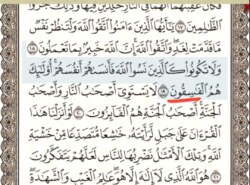 فَكَانَ عَٰقِبَتَهُمَآ أَنَّهُمَا فِي ٱلنَّارِ خَٰلِدَيْنِ فِيهَا وَذَٰلِكَ جَزَٰٓؤُاْ
ٱلظَّٰلِمِينَ ١٧ يَٰٓأَيُّهَا ٱلَّذِينَ ءَامَنُواْ ٱتَّقُواْ ٱللَّهَ وَلْتَنظُرْ نَفْسٌ
مَّا قَدَّمَتْ لِغَدٍ وَٱتَّقُواْ ٱللَّهَ إِنَّ ٱللَّهَ خَبِيرٌۢ بِمَا تَعْمَلُونَ ١٨
وَلَا تَكُونُواْ كَٱلَّذِينَ نَسُواْ ٱللَّهَ فَأَنسَىٰهُمْ أَنفُسَهُمْ أُوْلَٰٓئِكَ
هُمُ ٱلْفَٰسِقُونَ ١٩ لَا يَسْتَوِيٓ أَصْحَٰبُ ٱلنَّارِ وَأَصْحَٰبُ
ٱلْجَنَّةِ أَصْحَٰبُ ٱلْجَنَّةِ هُمُ ٱلْفَآئِزُونَ ٢٠ لَوْ أَنزَلْنَا هَٰذَا
ٱلْقُرْءَانَ عَلَىٰ جَبَلٍ لَّرَأَيْتَهُۥ خَٰشِعًا مُّتَصَدِّعًا مِّنْ خَشْيَةِ
ٱللَّهِ وَتِلْكَ ٱلْأَمْثَٰلُ نَضْرِبُهَا لِلنَّاسِ لَعَلَّهُمْ يَتَفَكَّرُونَ
٢١ هُوَ ٱللَّهُ ٱلَّذِي لَآ إِلَٰهَ إِلَّا هُوَ عَٰلِمُ ٱلْغَيْبِ وَٱلشَّهَٰدَةِ